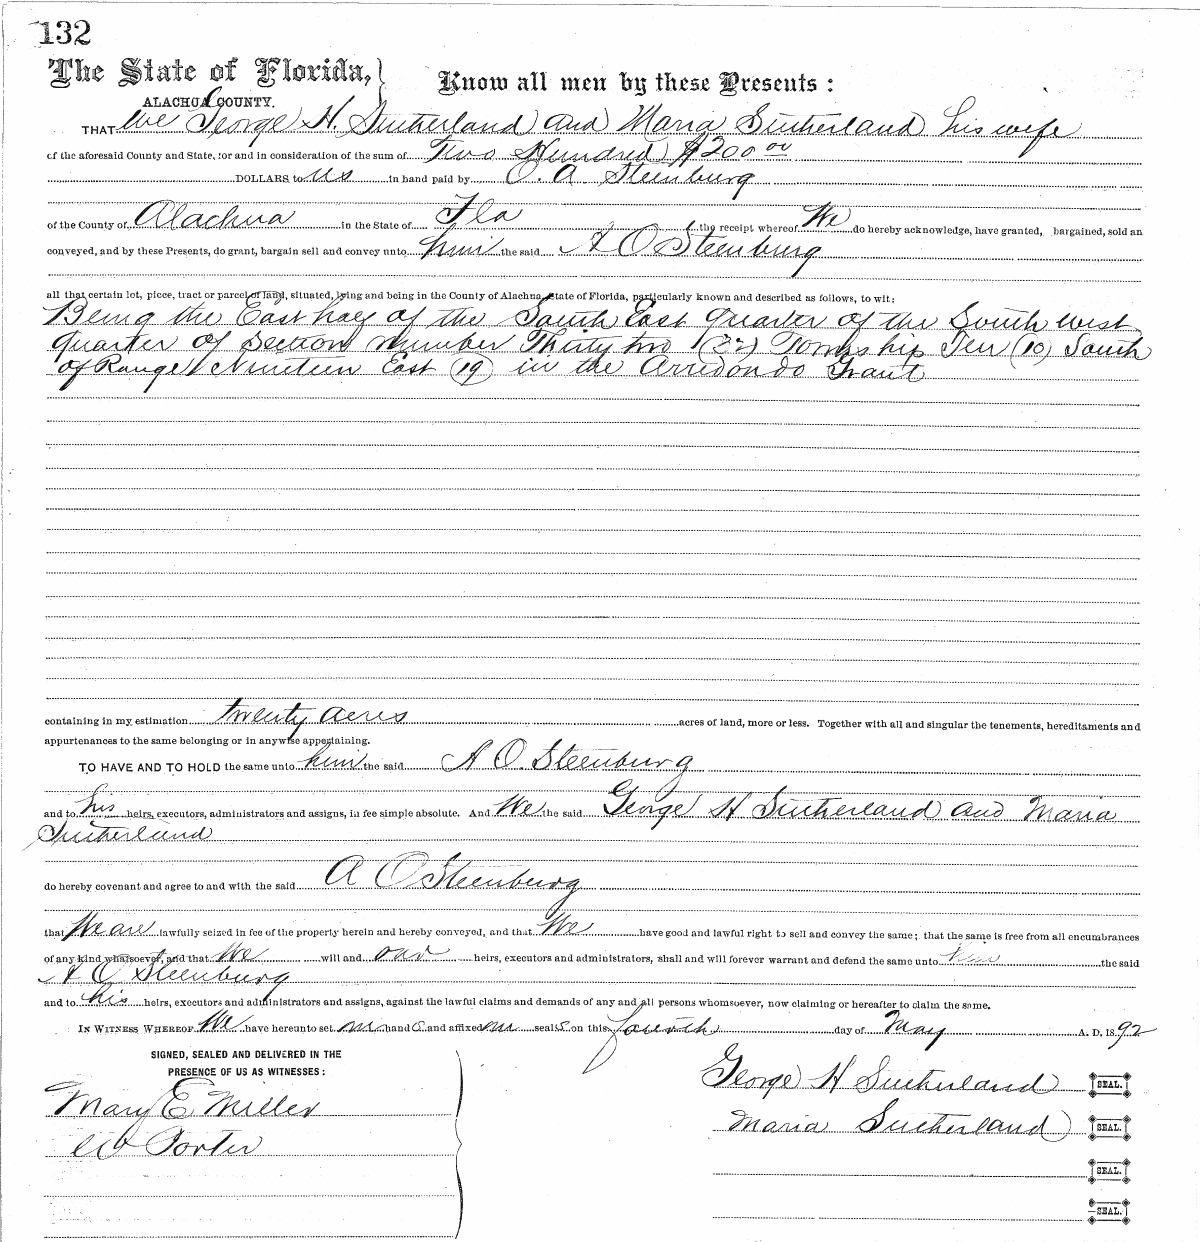 132
The State of Florida,} Know all men by these Presents :
ALACHUA COUNTY.
THAT We George H. Sutherland and Maria Sutherland his wife
of the aforesaid County and State, for and in consideration of the sum of Two Hundred $200 00
DOLLARS to us in hand paid by O. A. Steenburg
of the County of Alachua in the State of Fla the receipt whereof We do hereby acknowledge, have granted, bargained, sold an
conveyed, and by these Presents, do grant, bargain sell and convey unto him the said A O Steenburg
all that certain lot, piece, tract or parcel of land, situated, lying and being in the County of Alachua, State of Florida, particularly known and described as follows, to wit:
Being the East half of the South East quarter of the South west
quarter of Section number Thirty two (32) Township Ten (10) South
of Range Nineteen East (19) in the Arredondo Grant
containing in my estimation twenty acres acres of land, more or less. Together with all and singular the tenements, hereditaments and
appurtenances to the same belonging or in anywise appertaining.
TO HAVE AND TO HOLD the same unto him the said A O. Steenburg
and to his heirs, executors, administrators and assigns, in fee simple absolute. And We the said George H Sutherland and Maria
Sutherland
do hereby covenant and agree to and with the said A O Steenburg
that We are lawfully seized in fee of the property herein and hereby conveyed, and that We have good and lawful right to sell and convey the same; that the same is free from all encumbrances
of any kind whatsoever, and that We will and our heirs, executors and administrators, shall and will forever warrant and defend the same unto him the said
A O Steenburg
and to his heirs, executors and administrators and assigns, against the lawful claims and demands of any and all persons whomsoever, now claiming or hereafter to claim the same.
IN WITNESS WHEREOF We have hereunto set hand s and affixed seal s on this fourth day of May A. D. 1892
SIGNED, SEALED AND DELIVERED IN THE
PRESENCE OF US AS WITNESSES :
George H Sutherland SEAL.
Mary E Miller
Maria Sutherland SEAL.
Porter
SEAL.
SEAL.